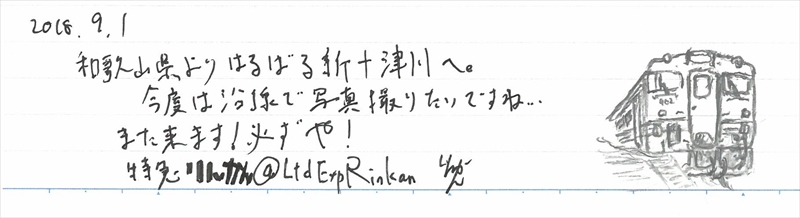 2018.9.1
和歌山県よりはるばる新十津川へ。
今度は沿線で写真撮りたいですね…
また来ます!必ずや!
特急りんかん@LtdExpRinkan
402